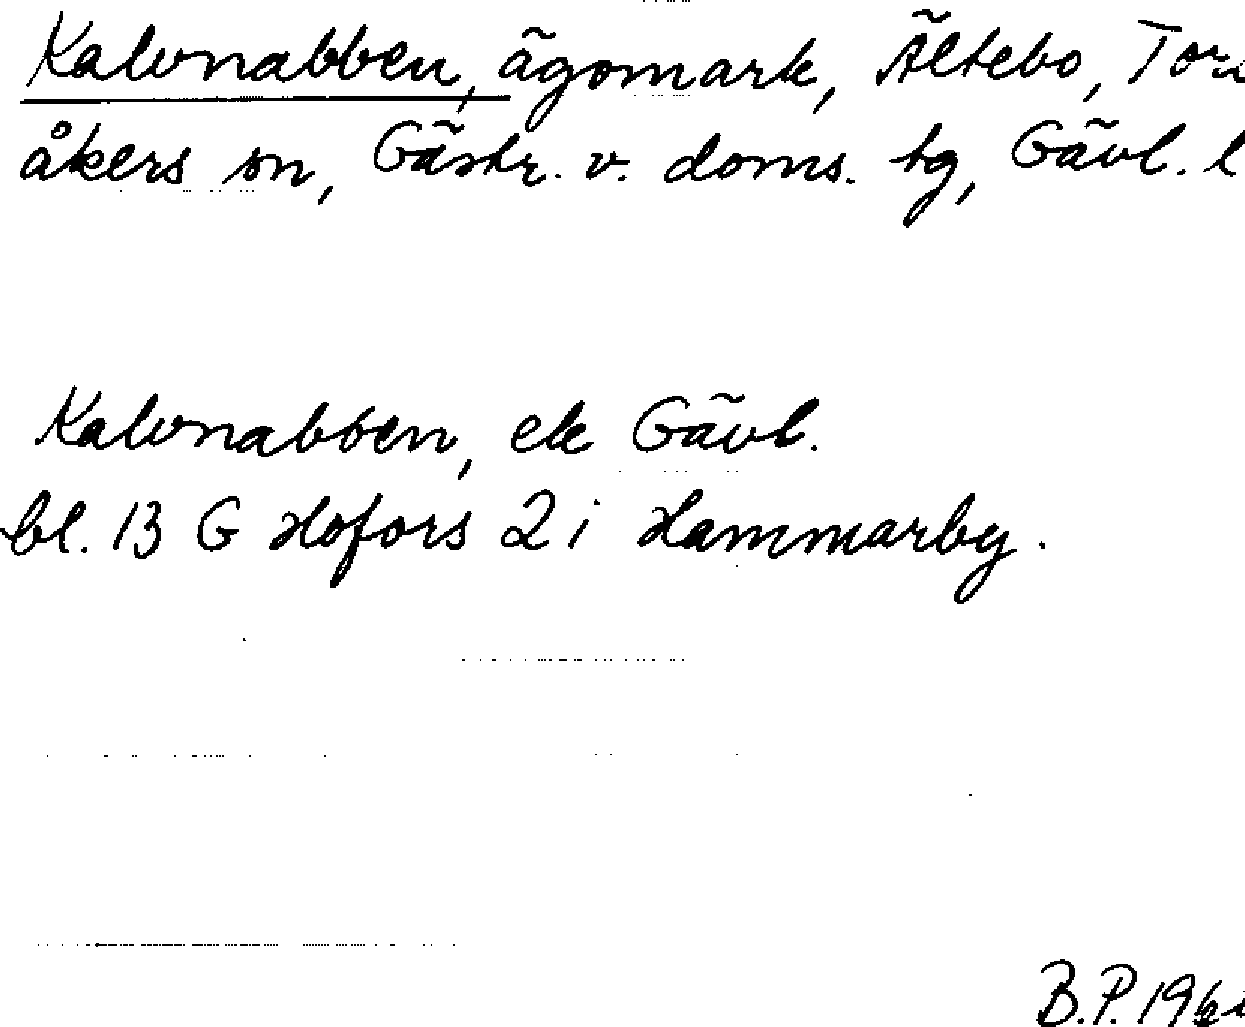 Kalvnabben, ägomark, Ältebo, Tors
åkers sn, Gästr. v. doms. tg, Gävl. l
Kalvnabben, ek Gävl.
bl. 13 G Hofors 2 i Hammarby.
B.P.